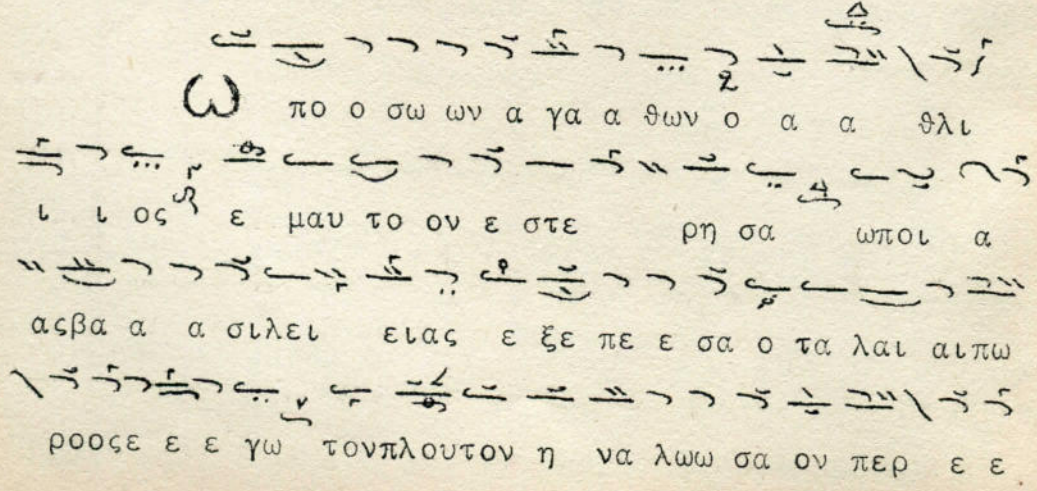 Ω πο ο σω ων α γα α θων ο α α θλι
ι ι ος ε μαυ το ον ε στε ρη σα ωποι α
αςβα α α σιλει ειας ε ξε πε ε σα ο τα λαι αιπω
ροοςε ε ε γω τονπλουτον η να λωω σα ον περ ε ε